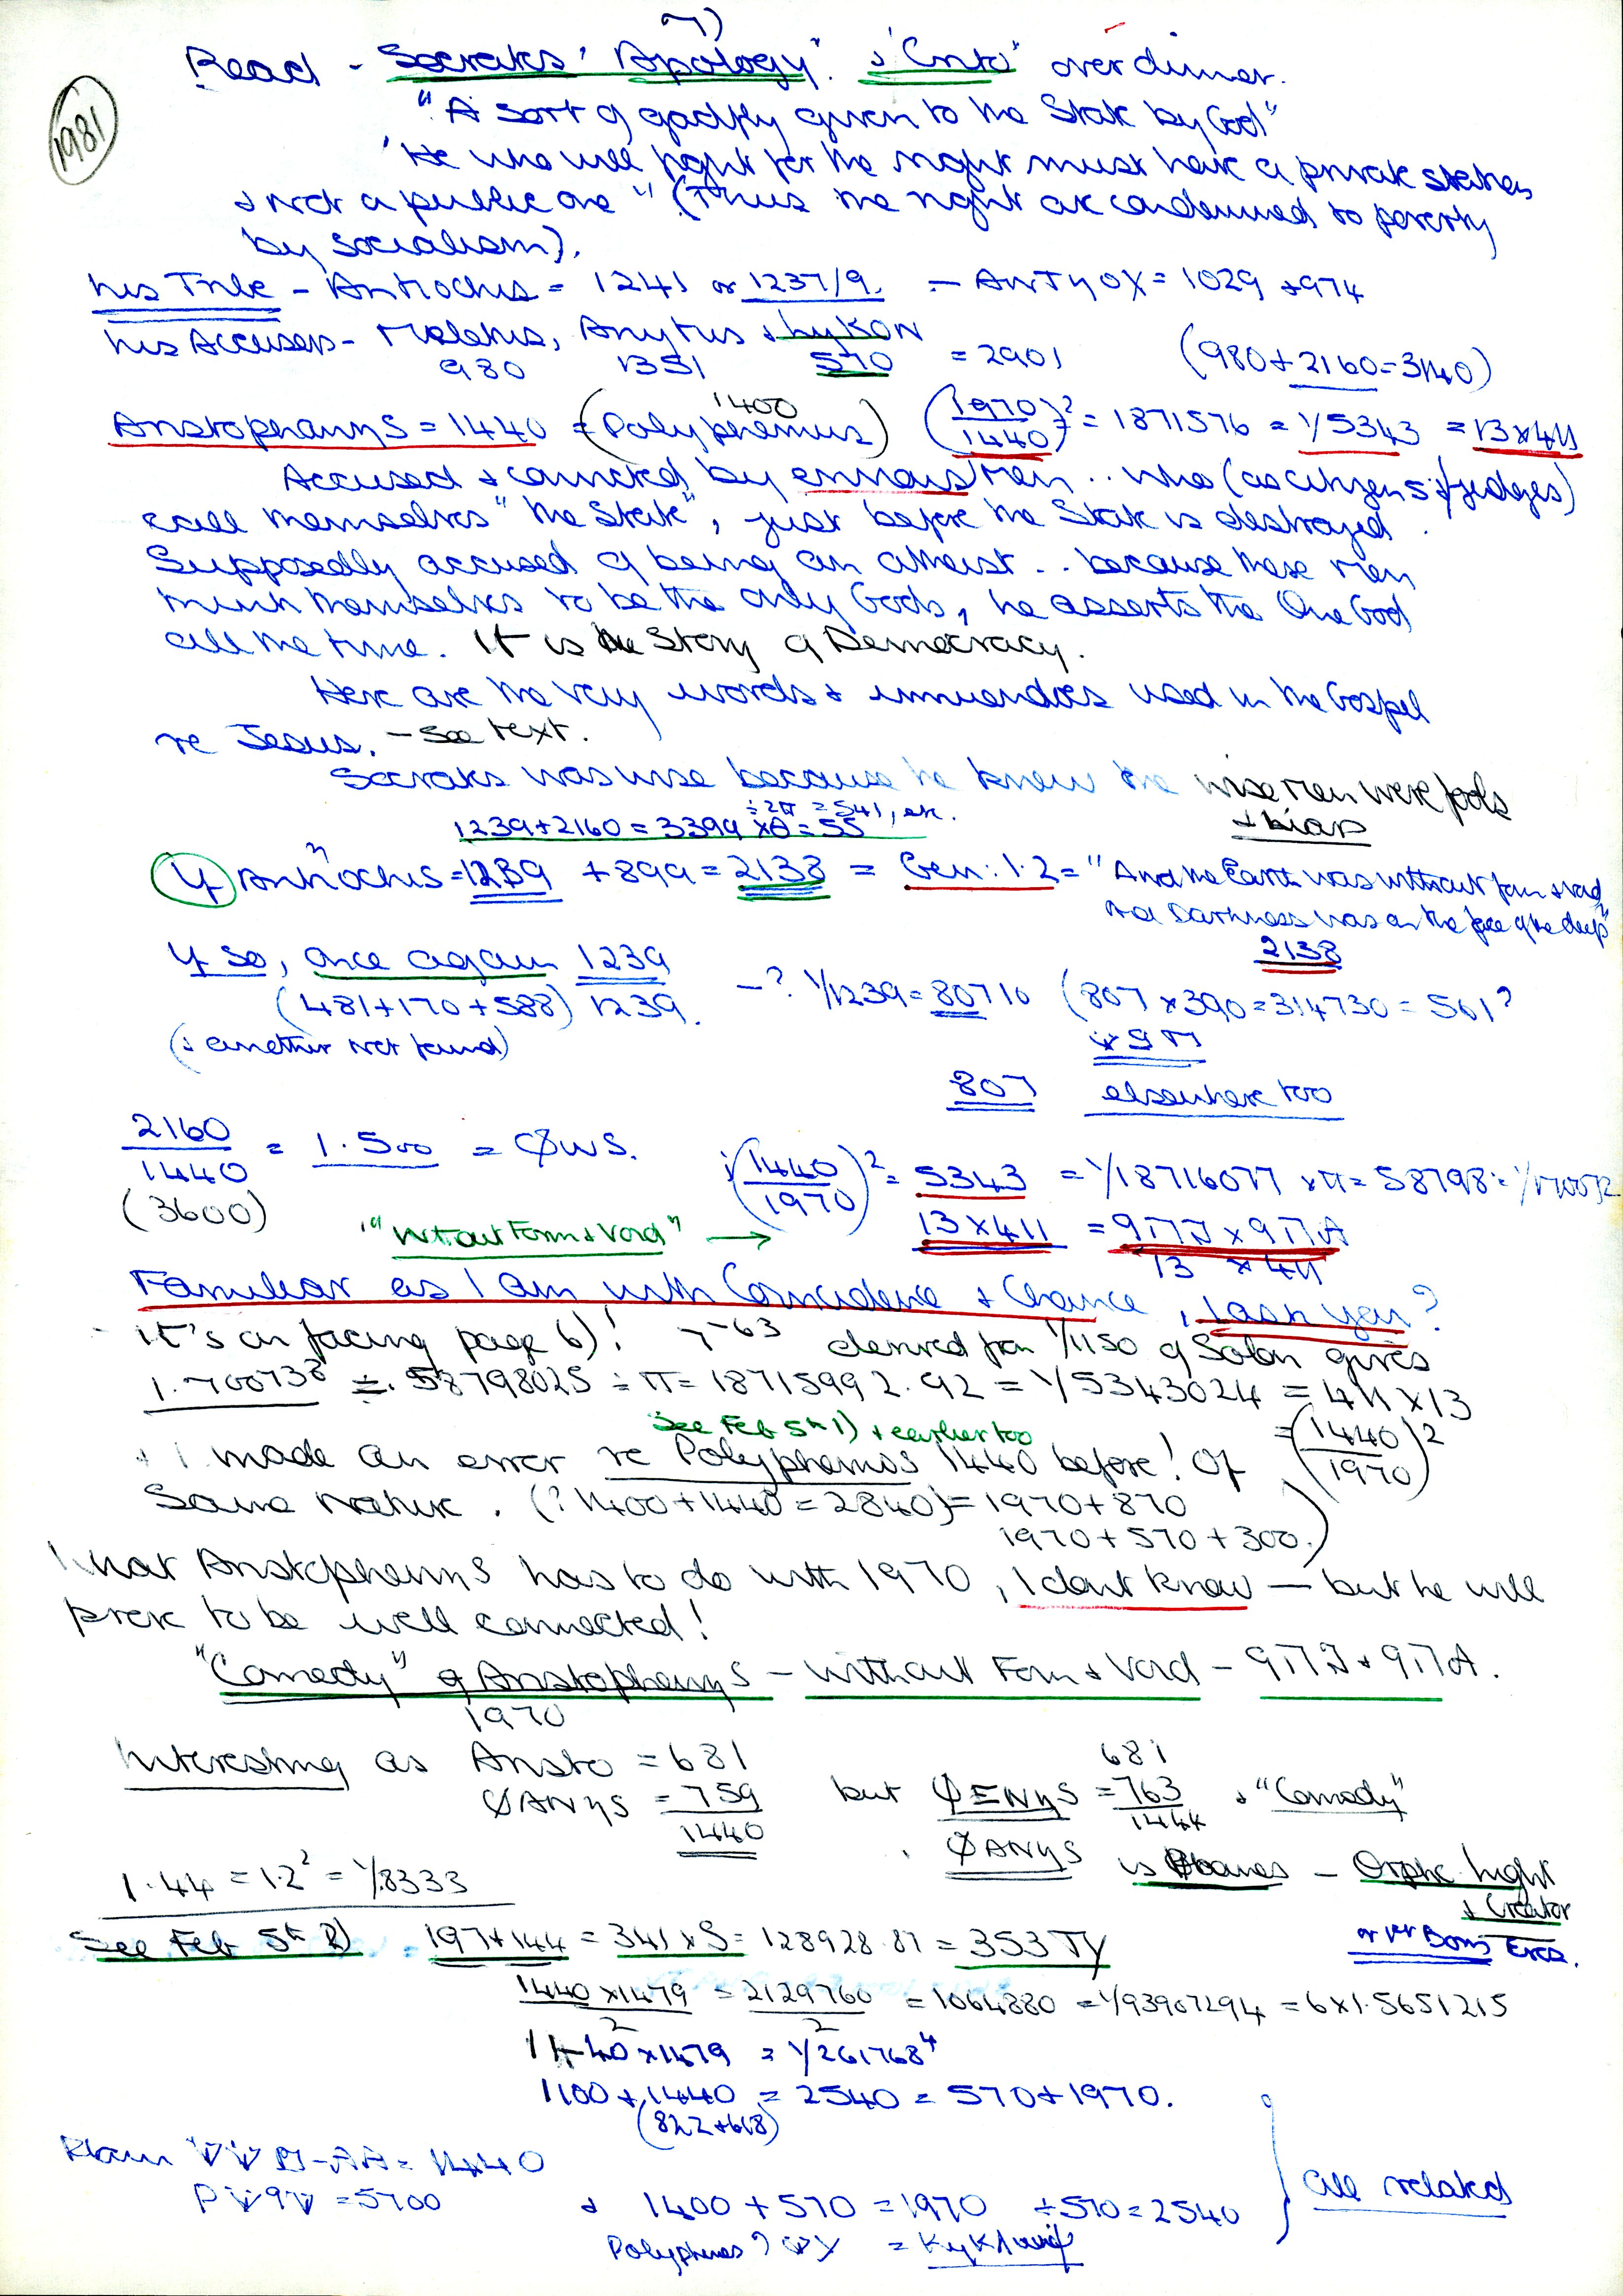 7)
Read - Socrates' "Apology" & "Crito" over dinner.
1981
"A sort of gadfly given to the State by God"
"He who will fight for the right must have a private station
& not a public one" (Thus the right are condemned to poverty
by socialism).
his Tribe - Antiochis = 1241 or 1237/9. - ANTYOX = 1029 + 974
his Accusers - Meletus, Anytus & LyKON = 2901 (980 + 2160 = 3140)
980 1351 570
AristophanyS = 1440 = (Polyphemus) (1970/1440)² = 1871576 = 1/5343 = 13 x 411
1400
Accused & convicted by envious men .. who (as citizens & judges)
call themselves "the State", just before the State is destroyed.
Supposedly accused of being an atheist .. because these men
think themselves to be the only Gods, he asserts the One God
all the time. It is the Story of Democracy.
Here are the very words & innuendoes used in the Gospel
re Jesus. - see text.
Socrates was wise because he knew the wise men were fools
& liars
÷ 2π = 541, etc.
1239 + 2160 = 3399 x θ = 55
If Antiochis = 1239 + 899 = 2138 = Gen: 1.2 = "And the Earth was without form & void
and Darkness was on the face of the deep"
2138
If so, once again 1239
(481 + 170 + 588) 1239. - ? 1/1239 = 80710 (807 x 390 = 314730 = 561?
(& another not found)
807 elsewhere too
2160/1440 = 1.500 = ØWS.
(3600)
(1440/1970)² = 5343 = 1/18716077 x π = 58798 =
13 x 411
"Without Form & Void" →
13 x 411
Familiar as I am with Coincidence & Chance, I ask you?
- it's on facing page 6)! 7⁻⁶³ derived from 1/1150 of Solon gives
1.700738 = .58798025 ÷ π = 18715992.92 = 1/5343024 = 411 x 13
See Feb 5th 1) & earlier too
= (1440/1970)²
& I made an error re Polyphemos 1440 before! Of
Same nature. (? 1400 + 1440 = 2840) = 1970 + 870
1970 + 570 + 300.)
What AristophanyS has to do with 1970, I dont know — but he will
prove to be well connected!
"Comedy" of AristophanyS - without Form & Void -
1970
Interesting as Aristo = 681
ØANyS = 759
1440
but ØENyS = 763 & "Comedy"
681
1444
ØANyS is Phanes - Orphic light
& Creator
or 1st Born Eros.
1.44 = 1.2² = 1/8333
See Feb 5th 2) 197 + 144 = 341 x S = 128928.87 = 353 TY
1440 x 1479/2 = 2129760/2 = 1064880 = 1/93907294 = 6 x 1.5651215
1440 x 1479 = 1/261768⁴
1100 + 1440 = 2540 = 570 + 1970.
(822 + 618)
= 1440
= 5700
& 1400 + 570 = 1970 + 570 = 2540
Polyphemos?
All related